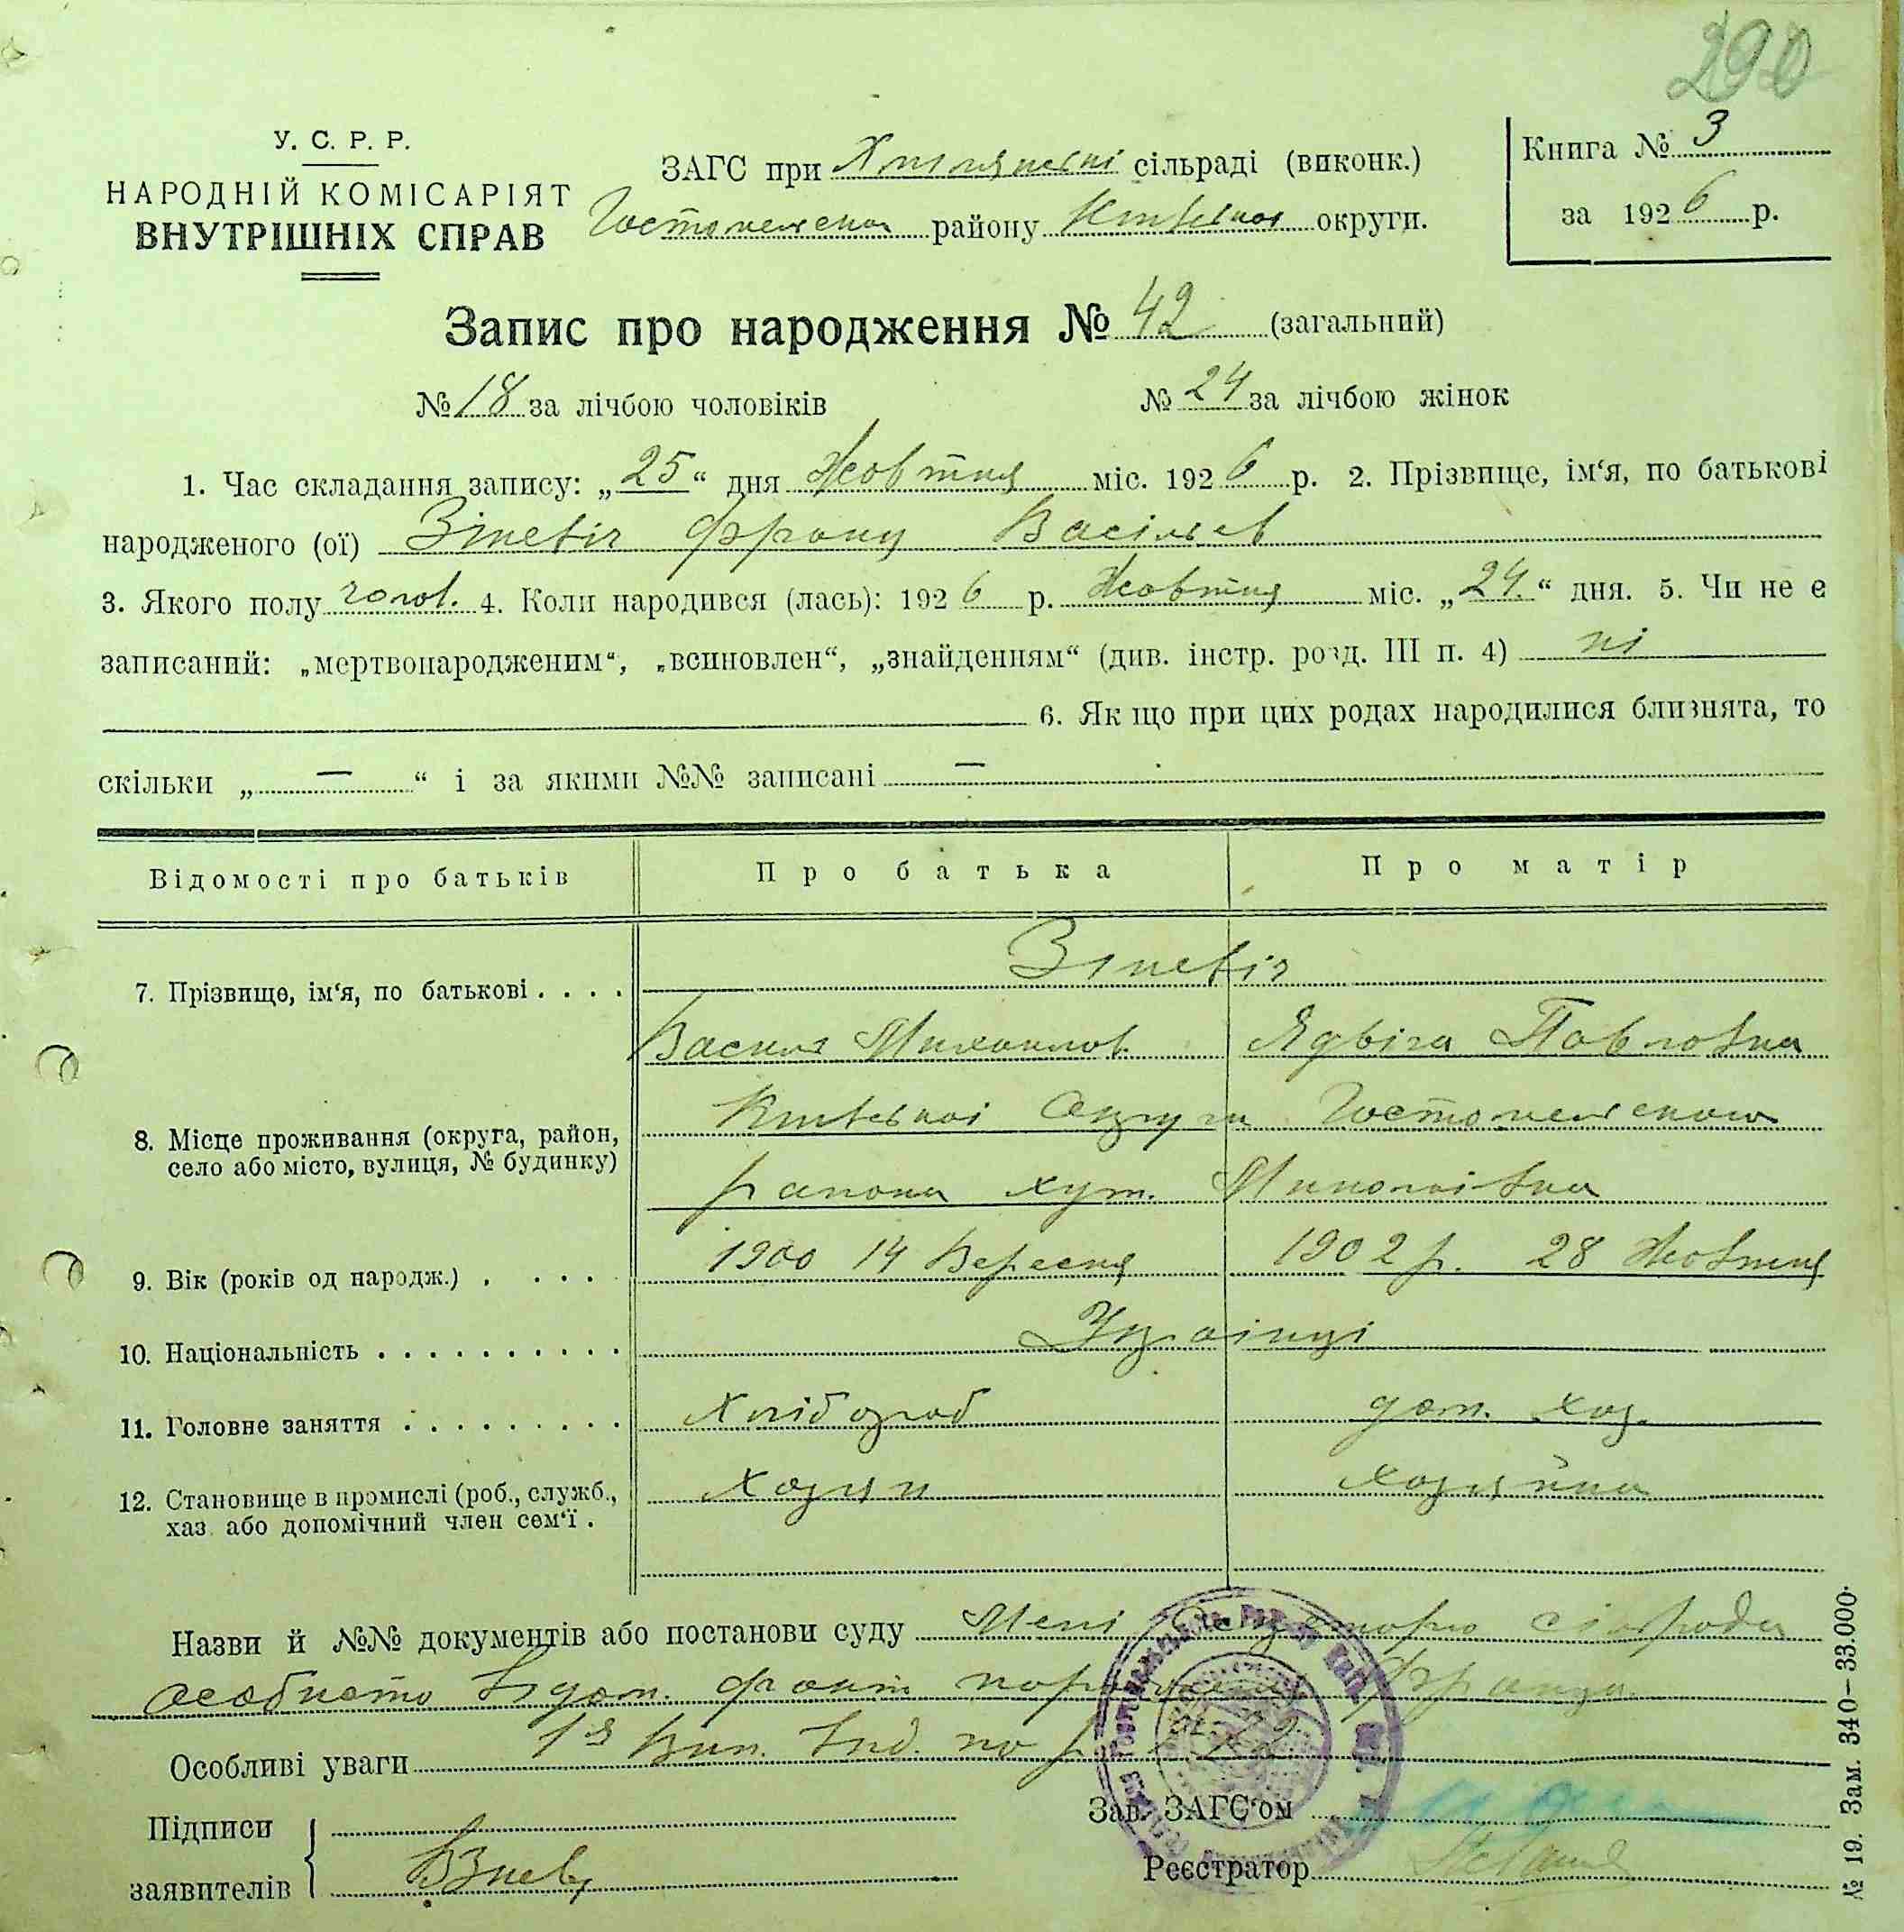 290
У. С. Р. Р.
НАРОДНІЙ КОМІСАРІЯТ
ВНУТРІШНІХ СПРАВ
ЗАГС при сільраді (виконк.)
Гостомельскоі району Київської округи.
Книга № 3
за 1926 р.
Запис про народження № 42 (загальний)
№ 18 за лічбою чоловіків № 24 за лічбою жінок
1. Час складання запису: „25“ дня Жовтня міс. 1926 р. 2. Прізвище, ім‘я, по батькові
народженого (ої) Зіневіч Франц Васільев
3. Якого полу чолов. 4. Коли народився (лась): 1926 р. Жовтня міс. „24.“ дня. 5. Чи не є
записаний: „мертвонародженим“, „всиновлен“, „знайденням“ (див. інстр. розд. III п. 4) ні
6. Якщо при цих родах народилися близнята, то
скільки „ — “ і за якими №№ записані —
Відомості про батьків Про батька Про матір
Зіневіч
7. Прізвище, ім‘я, по батькові . . . .
Василь Михайлов. Ядвіга Павловна
Київськоі Округи Гостомельского
8. Місце проживання (округа, район,
село або місто, вулиця, № будинку)
району хут. Миколаівка
9. Вік (років од народж.) . . . . 1900 14 Вересня 1902 р. 28 Жовтня
10. Національність . . . . . . . . . . Украінці
11. Головне заняття . . . . . . . . . Хлібороб дом. хоз.
12. Становище в промислі (роб., служб.,
хаз. або допомічний член сем‘ї . Хозяін хозяйка
Назви й №№ документів або постанови суду Мені сільради
особисто відом. факт народження Франца
Особливі уваги
Підписи
заявителів
Зав. ЗАГС‘ом
Реєстратор
№ 19. Зам. 340—33.000.